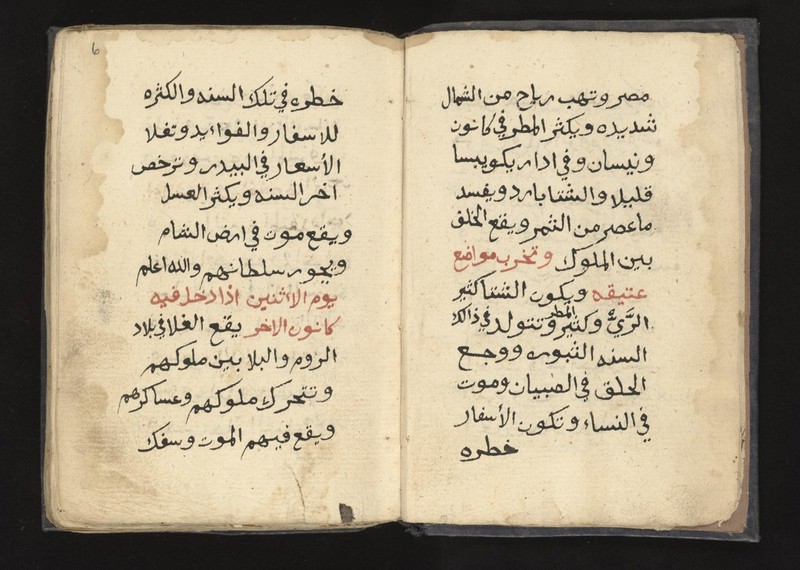 مصر وتهب رياح من الشمال
شديده ويكثر المطر في كانون
ونيسان وفي ادار يكو يبسا
قليلا والشتا بارد ويفسد
ما عصر من الثمر ويقع الخلف
بين الملوك وتخرب مواضع
عتيقه ويكون الشتا كثير
الرَّيّ وكثير المطر وتتولد في ذالك
السنه الثبوره ووجع
الحلق في الصبيان وموت
في النساء وتكون الأسفار
خطره
6
خطره في تلك السنه والكثره
للاسفار والفوائد وتغلا
الأسعار في البيدر وترخص
اخر السنه ويكثر العسل
ويقع موت في ارض الشام
ويجور سلطانهم والله اعلم
يوم الاثنين اذا دخل فيه
كانون الاخر يقع الغلا في بلاد
الروم والبلا بين ملوكهم
وتتحرك ملوكهم وعساكرهم
ويقع فيهم الموت وسفك